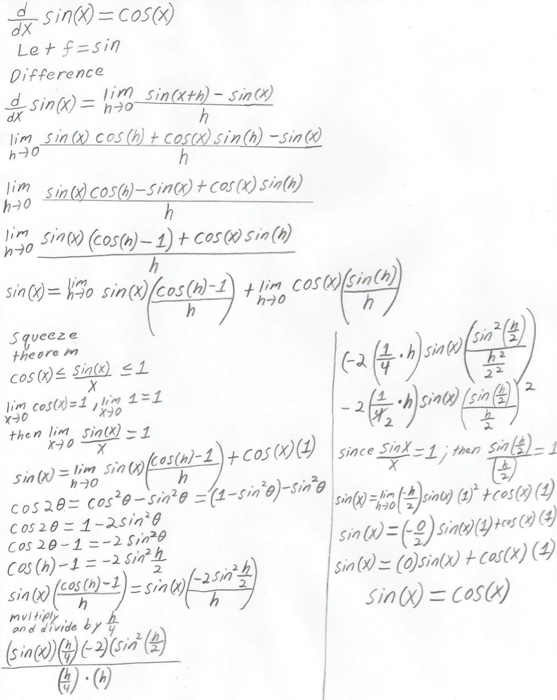 d/dx sin(x) = cos(x)
Let f = sin
Difference
d/dx sin(x) = lim h→0 (sin(x+h) - sin(x))/h
lim h→0 (sin(x) cos(h) + cos(x) sin(h) - sin(x))/h
lim h→0 (sin(x) cos(h) - sin(x) + cos(x) sin(h))/h
lim h→0 (sin(x) (cos(h) - 1) + cos(x) sin(h))/h
sin(x) = lim h→0 sin(x) ((cos(h) - 1)/h) + lim h→0 cos(x) (sin(h)/h)
Squeeze
theorem
cos(x) ≤ sin(x)/x ≤ 1
lim x→0 cos(x) = 1, lim x→0 1 = 1
then lim x→0 sin(x)/x = 1
sin(x) = lim h→0 sin(x) ((cos(h) - 1)/h) + cos(x) (1)
cos 2θ = cos²θ - sin²θ = (1 - sin²θ) - sin²θ
cos 2θ = 1 - 2 sin²θ
cos 2θ - 1 = -2 sin²θ
cos(h) - 1 = -2 sin² h/2
sin(x) ((cos(h) - 1)/h) = sin(x) ((-2 sin² h/2)/h)
multiply
and divide by h/4
((sin(x)) (h/4) (-2) (sin² (h/2))/((h/4) · (h))
(-2 (1/4 · h) sin(x) (sin² (h/2)/(h²/2²))
-2 (1/4₂ · h) sin(x) (sin(h/2)/(h/2))²
since sin x/x = 1; then sin(h/2)/(h/2) = 1
sin(x) = lim h→0 (-h/2) sin(x) (1)² + cos(x) (1)
sin(x) = (-0/2) sin(x) (1) + cos(x) (1)
sin(x) = (0) sin(x) + cos(x) (1)
sin(x) = cos(x)